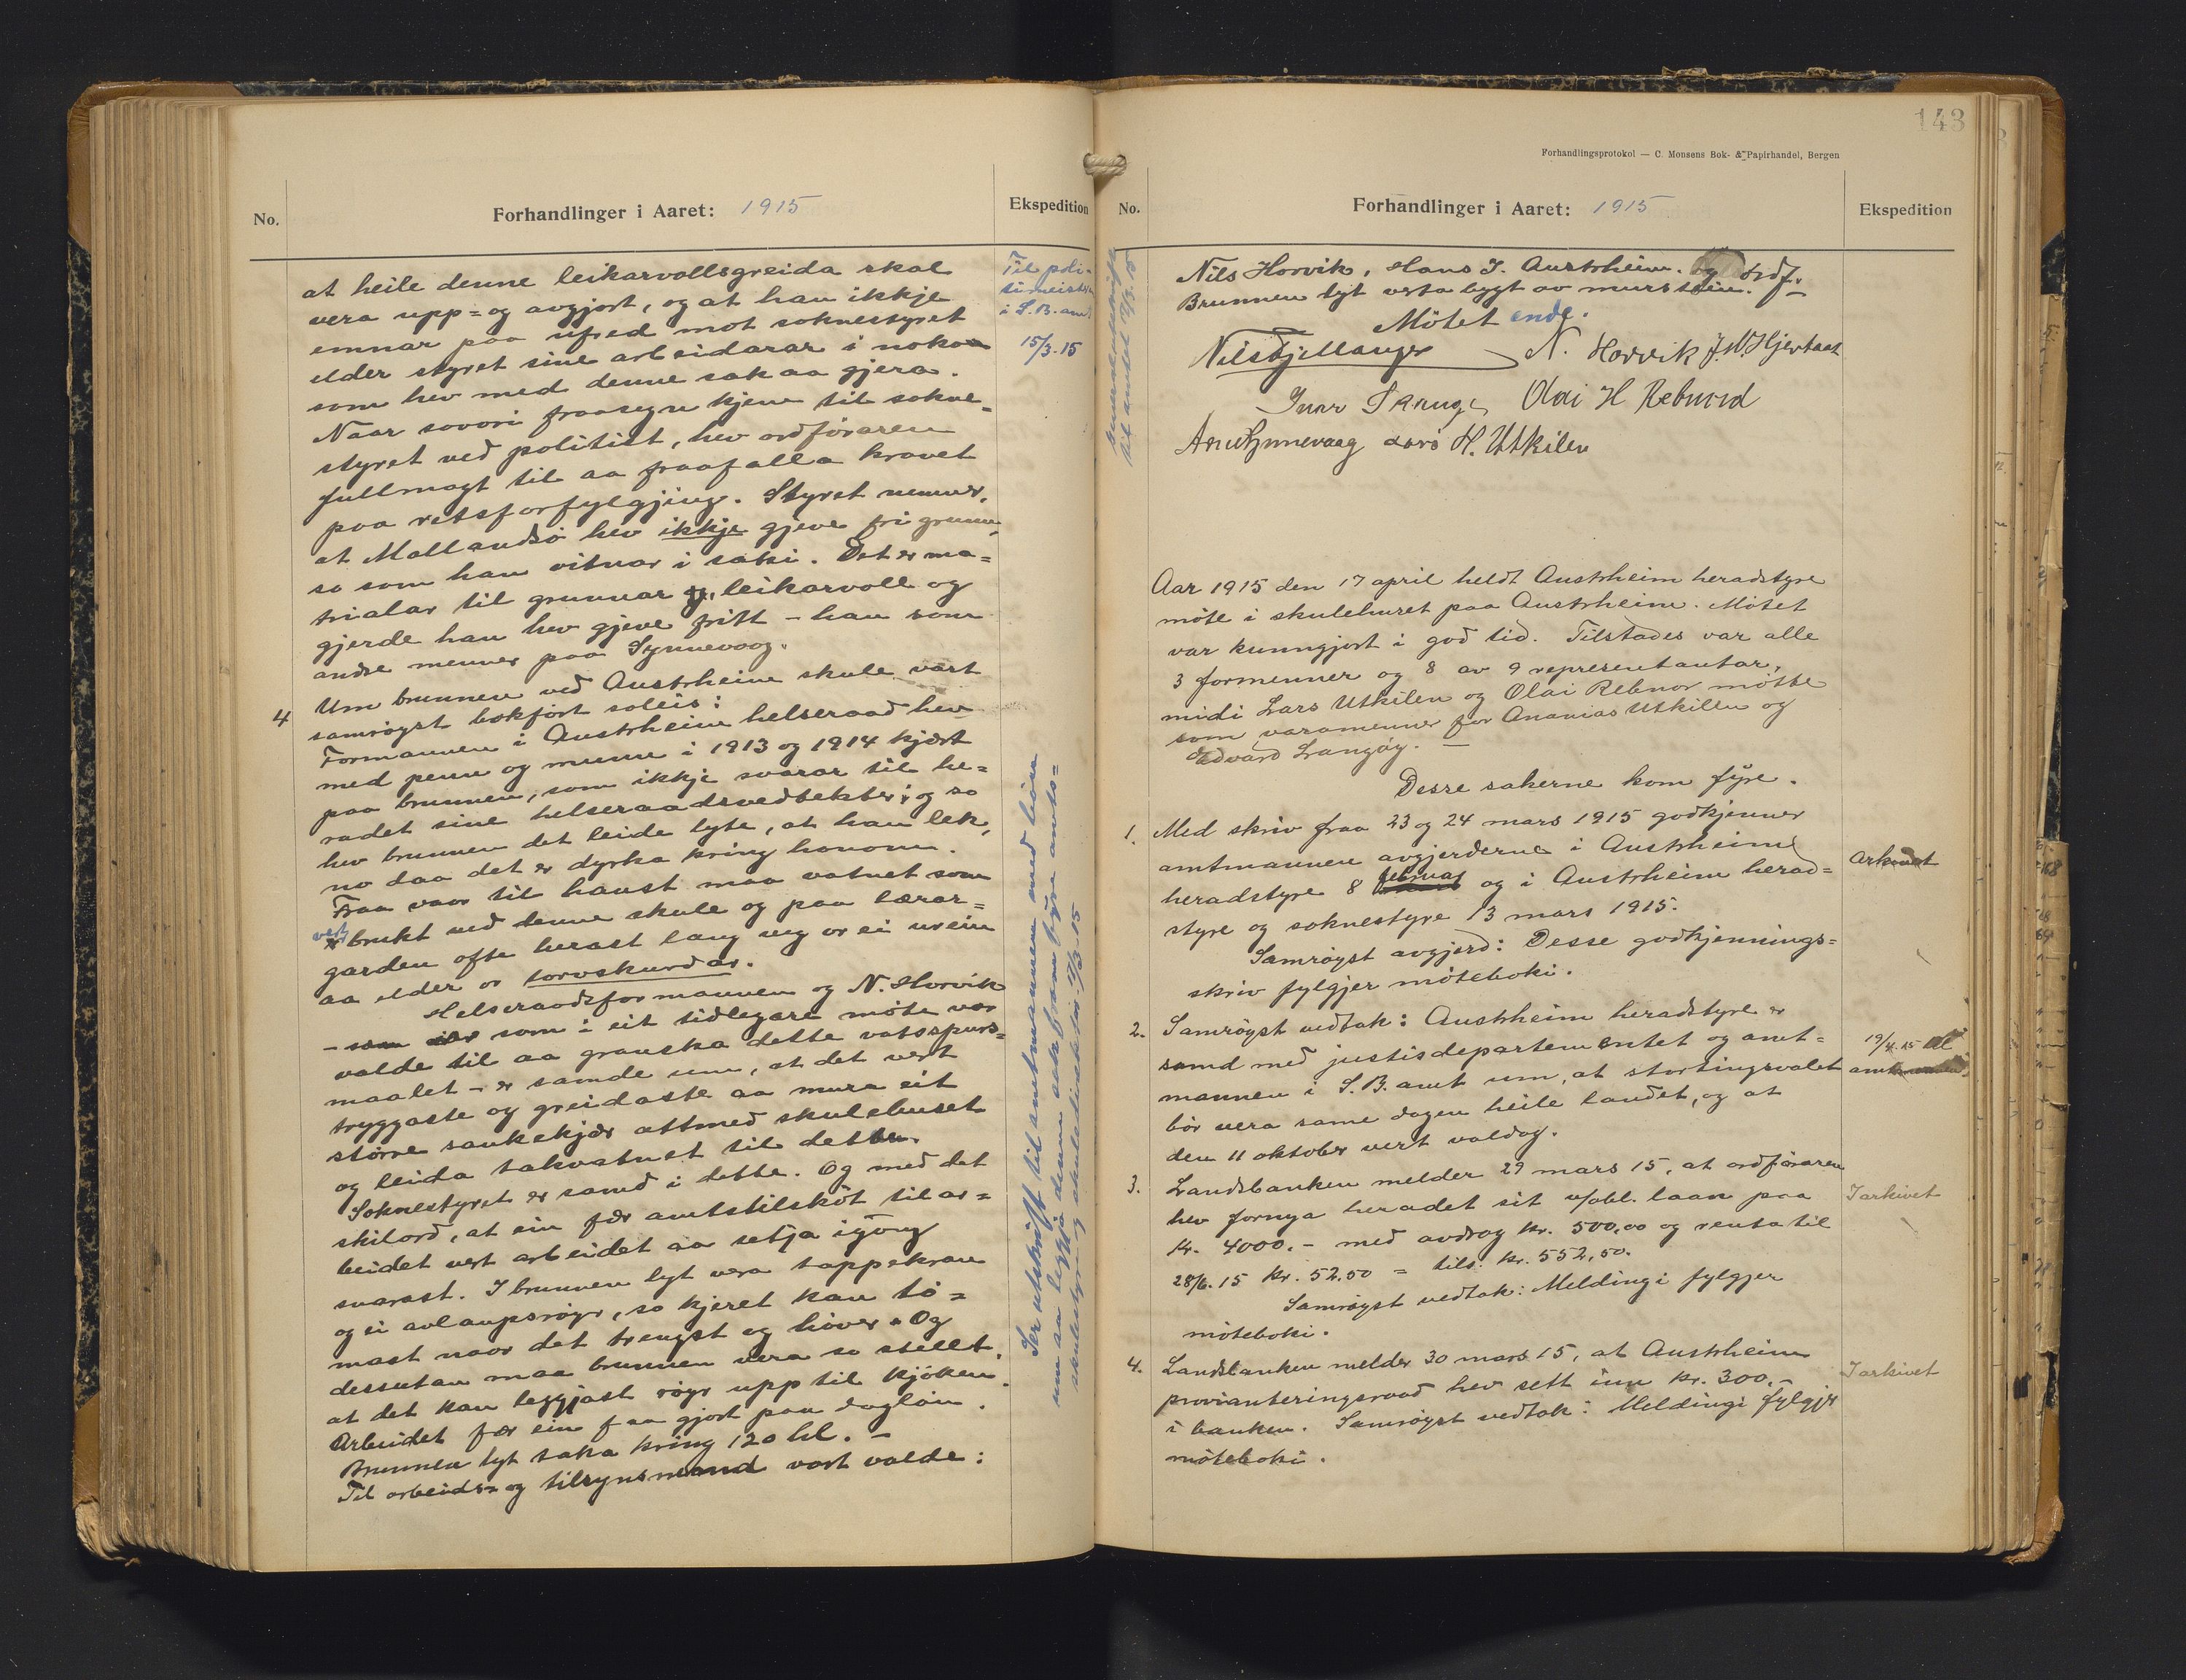 No.
Forhandlinger i Aaret: 1915
Ekspedition
at heile denne leikarvollsgreida skal
vera upp= og avgjort, og at han ikkje
emnar paa ufred mot soknestyret
elder styret sine arbeidarar i noko
som hev med denne sak aa gjera.
Naar sovori fraasegn kjem til sokne-
styret ved politiet, hev ordføraren
fullmagt til aa fraafalla kravet
paa retsforfylgjing. Styret nemner,
at Mallandsø hev ikkje gjeve fri grunn,
so som han vitnar i saki. Det er ma=
trialar til grunnar leikarvoll og
gjerde han hev gjeve fritt - han som
andre menner paa Synnevaag.
4 Um brunnen ved Austrheim skule vart
samrøyst bokført soleis:
Formannen i Austrheim helseraad hev
med penn og munn i 1913 og 1914 kjært
paa brunnen, som ikkje svarar til he=
radet sine helseraadsvedtekter; og so
hev brunnen det leide lyte, at han lek,
no daa det er dyrka kring honom.
Fraa vaar til haust maa vatnet som
vert brukt ved denne skule og paa lærar=
garden ofte herast lang veg or ei urein
aa elder or torvskurdar.
Helseraadsformannen og N. Horvik
- som i eit tidlegare møte var
valde til aa granska dette vatsspurs=
maalet - er samde um, at det vert
tryggaste og greidaste aa mura eit
større sankekjær attmed skulehuset
og leida takvatnet til dette.
Soknestyret er samd i dette. Og med det
skilord, at ein fær amtstilskòt til ar=
beidet vert arbeidet aa setja igong
snarast. I brunnen lyt vera tappekran
og ei avlaupsrøyr, so kjeret kan tø=
mast naar det trengst og høver. Og
dessutan maa brunnen vera so stellt,
at det kan leggjast røyr upp til kjøken.
Arbeidet fær ein faa gjort paa dagløn.
Brunnen lyt taka kring 120 hl. -
Til arbeids= og tilsynsmend vart valde:
Til poli-
timeistren
i S.B. amt
15/3.15
Ser utskrift til amtmannen med bøn
um aa leggja denne sak fram fyre amts=
skulestyre og skuledirektør 17/3.15
143
Forhandlingsprotokol — C. Monsens Bok- & Papirhandel, Bergen
No.
Forhandlinger i Aaret: 1915
Ekspedition
Nils Horvik, Hans J. Austrheim og ordf.
Brunnen lyt verta bygt av murstein.
Møtet ende.
Nils Fjellanger N. Horvik J.W. Hjertaas
Ivar Skauge Olai H Rebnord
Arne Synnevaag Lars H. Utkilen
Aar 1915 den 17 april heldt Austrheim heradstyre
møte i skulehuset paa Austrheim. Møtet
var kunngjort i god tid. Tilstades var alle
3 formenner og 8 av 9 representantar,
midi Lars Utkilen og Olai Rebnor møtte
som varamenner for Ananias Utkilen og
Edvard Langøy. -
Desse sakerne kom fyre.
1. Med skriv fraa 23 og 24 mars 1915 godkjenner
amtmannen avgjerderne i Austrheim
heradstyre 8 februar og i Austrheim herad=
styre og soknestyre 13 mars 1915.
Samrøyst avgjerd: Desse godkjennings=
skriv fylgjer møteboki.
Arkivet
2. Samrøyst vedtak: Austrheim heradstyre er
samd med justisdepartementet og amt=
mannen i S.B. amt um, at stortingsvalet
bør vera same dagen heile landet, og at
den 11 oktober vert valdag.
19/4.15 til
amtmannen.
3. Landsbanken melder 29 mars 15, at ordføraren
hev fornya heradet sit v/obl. laan paa
kr. 4000.- med avdrag kr. 500,00 og renta til
28/6.15 kr. 52,50 = tils. kr. 552,50.
Samrøyst vedtak: Meldingi fylgjer
møteboki.
I arkivet
4. Landsbanken melder 30 mars 15, at Austrheim
provianteringsraad hev sett inn kr. 300.-
i banken. Samrøyst vedtak: Meldingi fylgjer
møteboki.
I arkivet